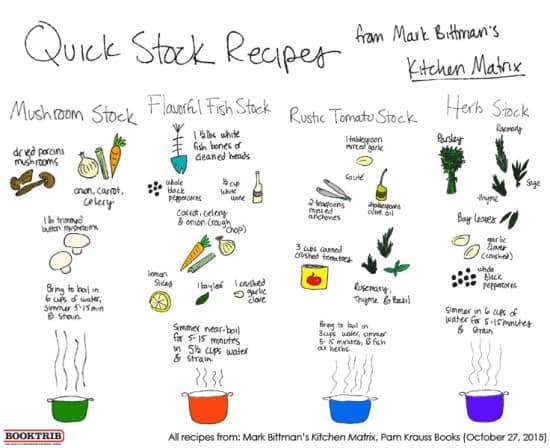 Quick Stock Recipes
from Mark Bittman's
Kitchen Matrix
Mushroom Stock
dried porcini
mushrooms
onion, carrot,
celery
1 lb trimmed
button mushrooms
Bring to boil in
6 cups of water,
simmer 5-15 min
& strain.
Flavorful Fish Stock
1 1/2 lbs white
fish bones or
cleaned heads
whole
black
peppercorns
1/2 cup
white
wine
carrot, celery
& onion (rough
chop)
lemon
slices
1 bay leaf
1 crushed
garlic
clove
Simmer near-boil
for 5-15 minutes
in 5 1/2 cups water
& strain.
Rustic Tomato Stock
1 tablespoon
minced garlic
sauté
2 teaspoons
minced
anchovies
2 tablespoons
olive oil
3 cups canned
crushed tomatoes
Rosemary,
Thyme & Basil
Bring to boil in
3 cups water, simmer
5-15 minutes, & fish
out herbs.
Herb Stock
Parsley
Rosemary
Sage
Thyme
Bay leaves
garlic
clove
(crushed)
whole
black
peppercorns
Simmer in 6 cups of
water for 5-15 minutes
& strain
BOOKTRIB
All recipes from: Mark Bittman's Kitchen Matrix, Pam Krauss Books (October 27, 2015)